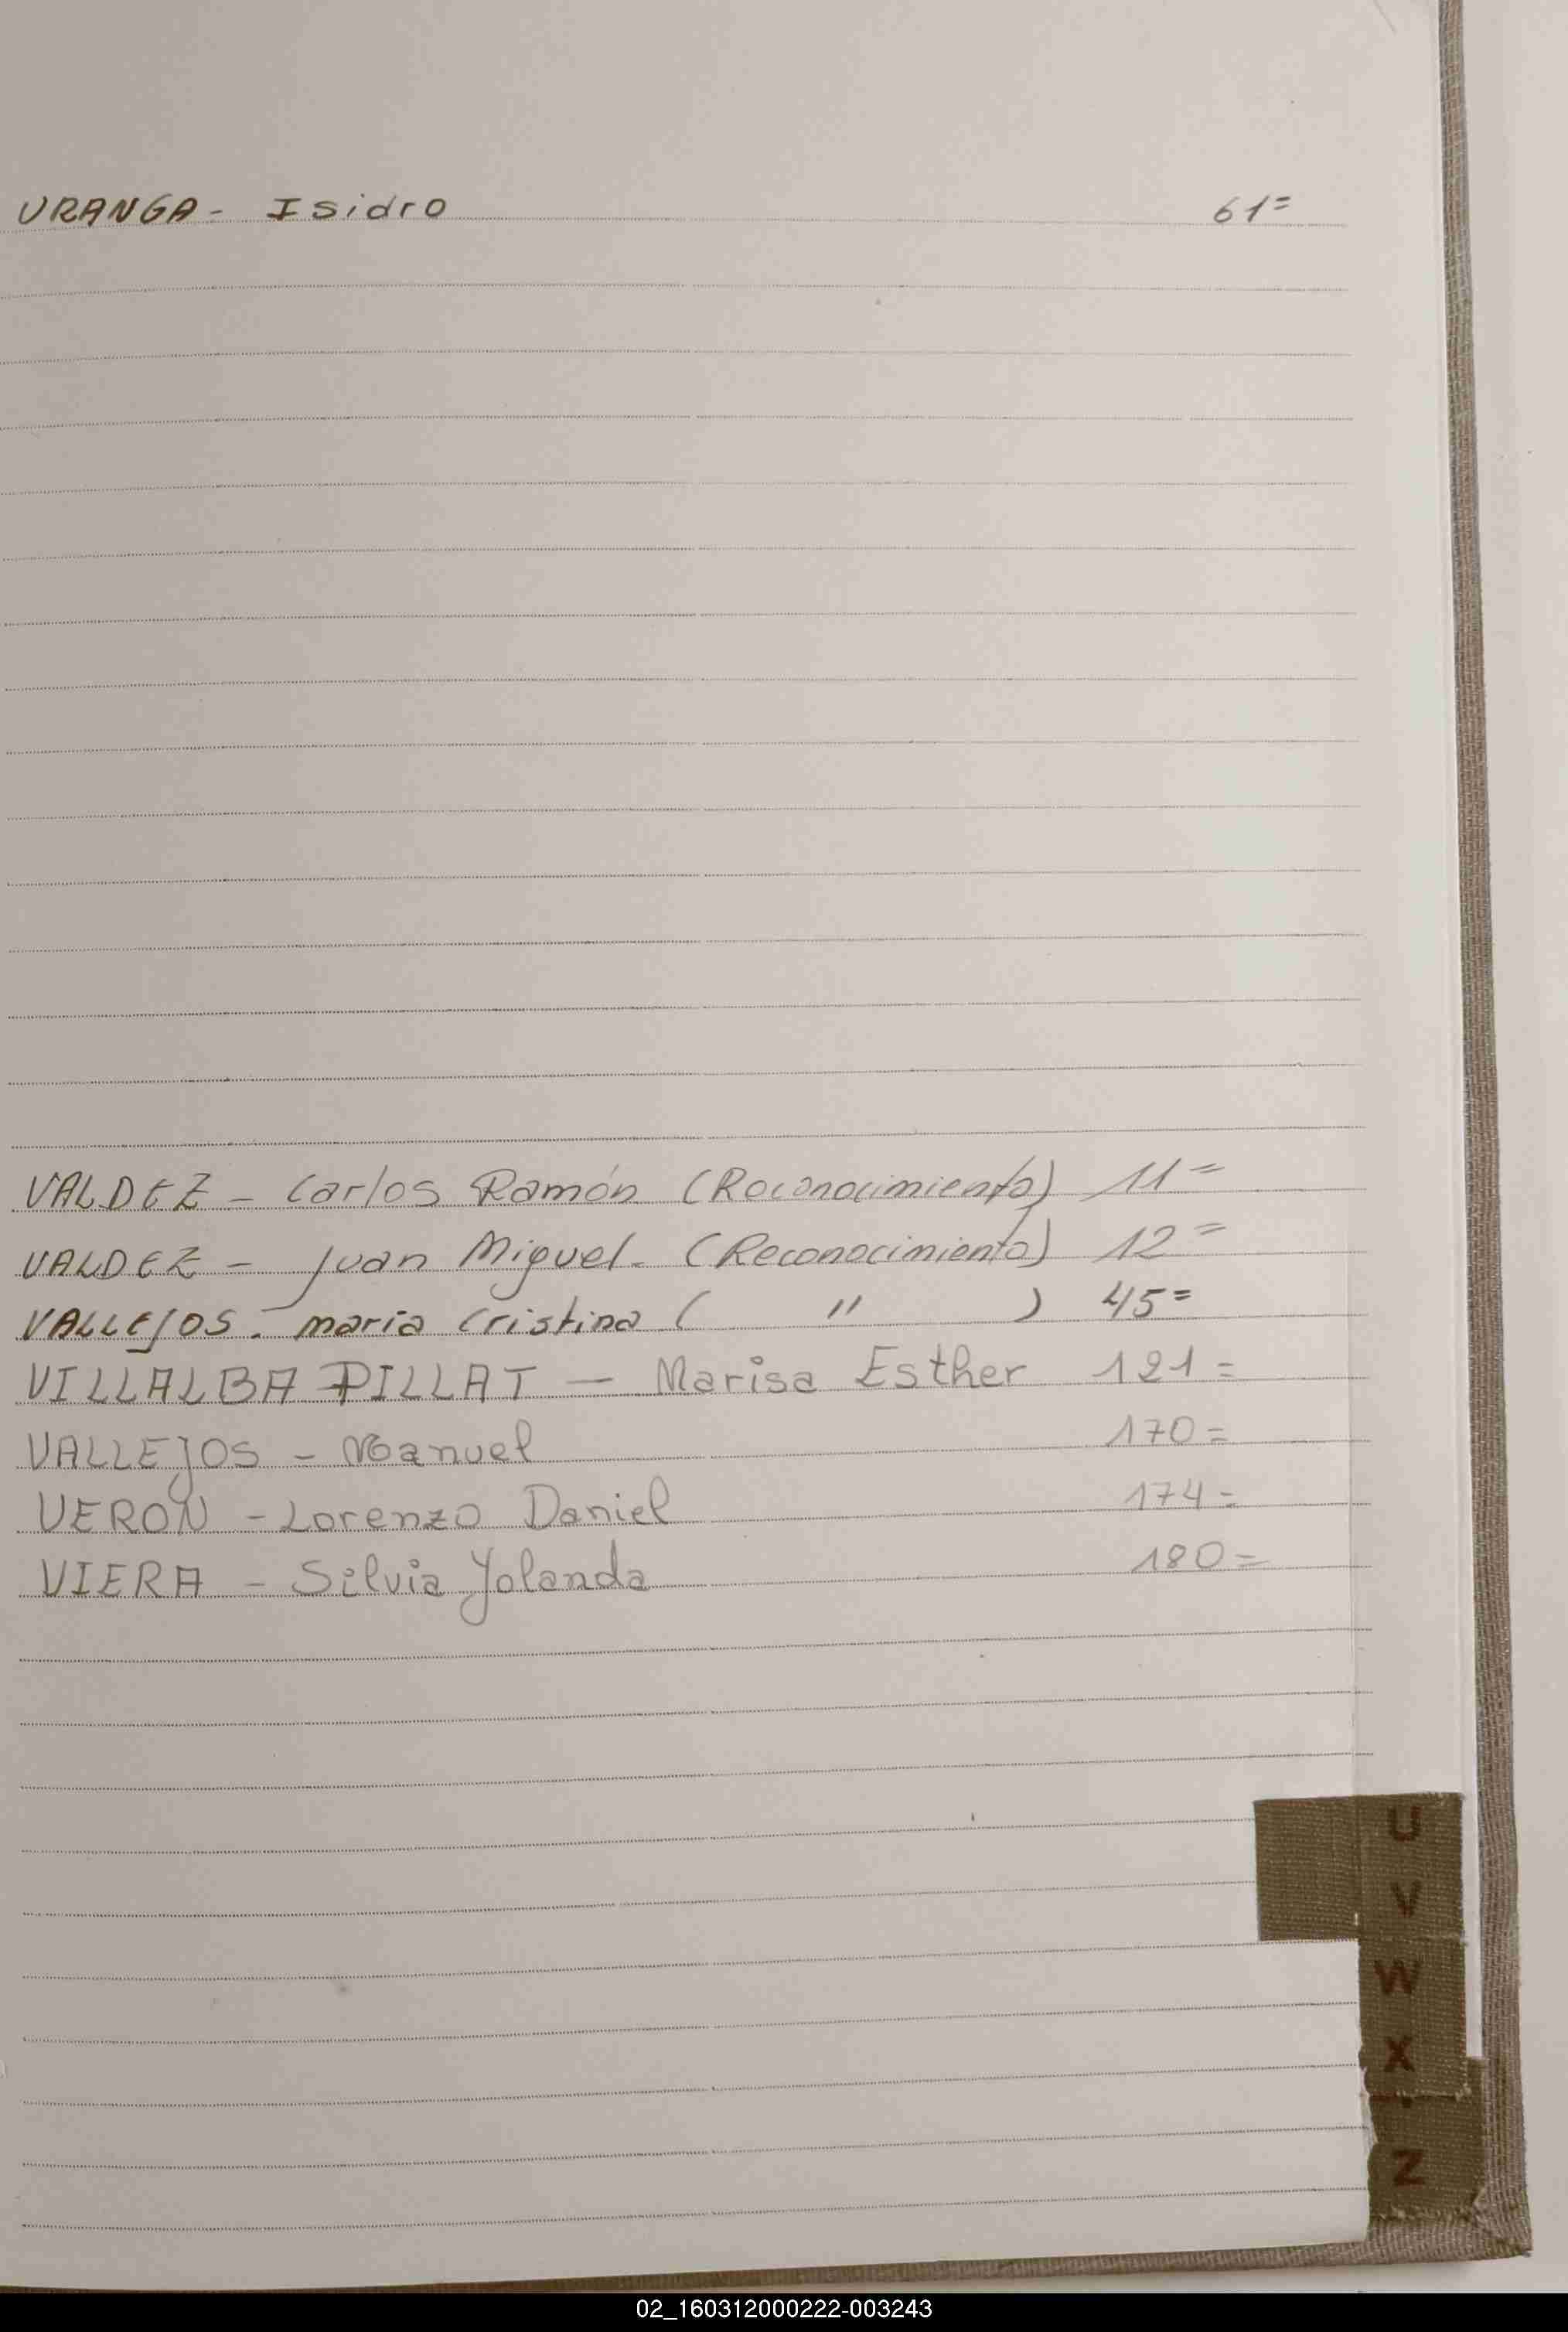 URANGA - Isidro 61=
VALDEZ - Carlos Ramón (Reconocimiento) 11=
VALDEZ - Juan Miguel. (Reconocimiento) 12=
VALLEJOS. maria Cristina ( " ) 45=
VILLALBA PILLAT - Marisa Esther 121=
VALLEJOS - Manuel 170=
VERON - Lorenzo Daniel 174=
VIERA - Silvia Yolanda 180=
U
V
W
X
Z
02_160312000222-003243